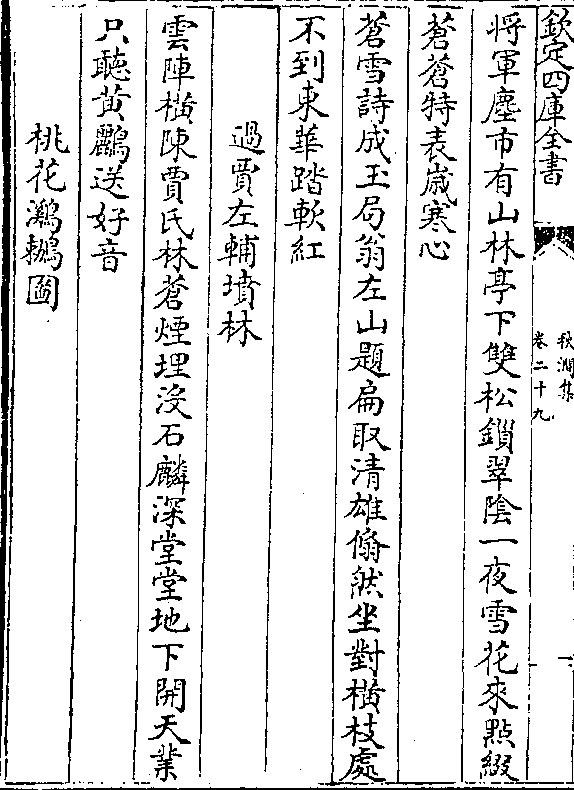 欽定四庫全書
秋澗集
卷二十九
將軍塵市有山林亭下雙松鎖翠陰一夜雪花來㸃綴
蒼蒼特表嵗寒心
蒼雪詩成玉局翁左山題扁取清雄翛然坐對橫枝處
不到東華踏軟紅
過賈左輔墳林
雲陣橫陳賈氏林蒼煙埋没石麟深堂堂地下開天業
只聽黄鸝送好音
桃花鸂鶒圖